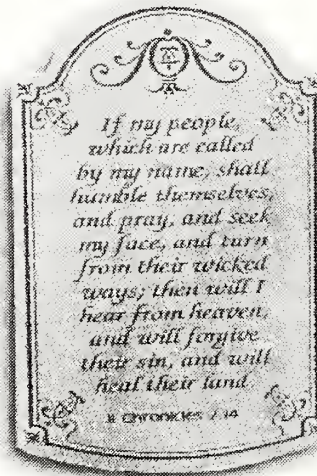 If my people,
which are called
by my name, shall
humble themselves,
and pray, and seek
my face, and turn
from their wicked
ways; then will I
hear from heaven,
and will forgive
their sin, and will
heal their land
II CHRONICLES 7:14